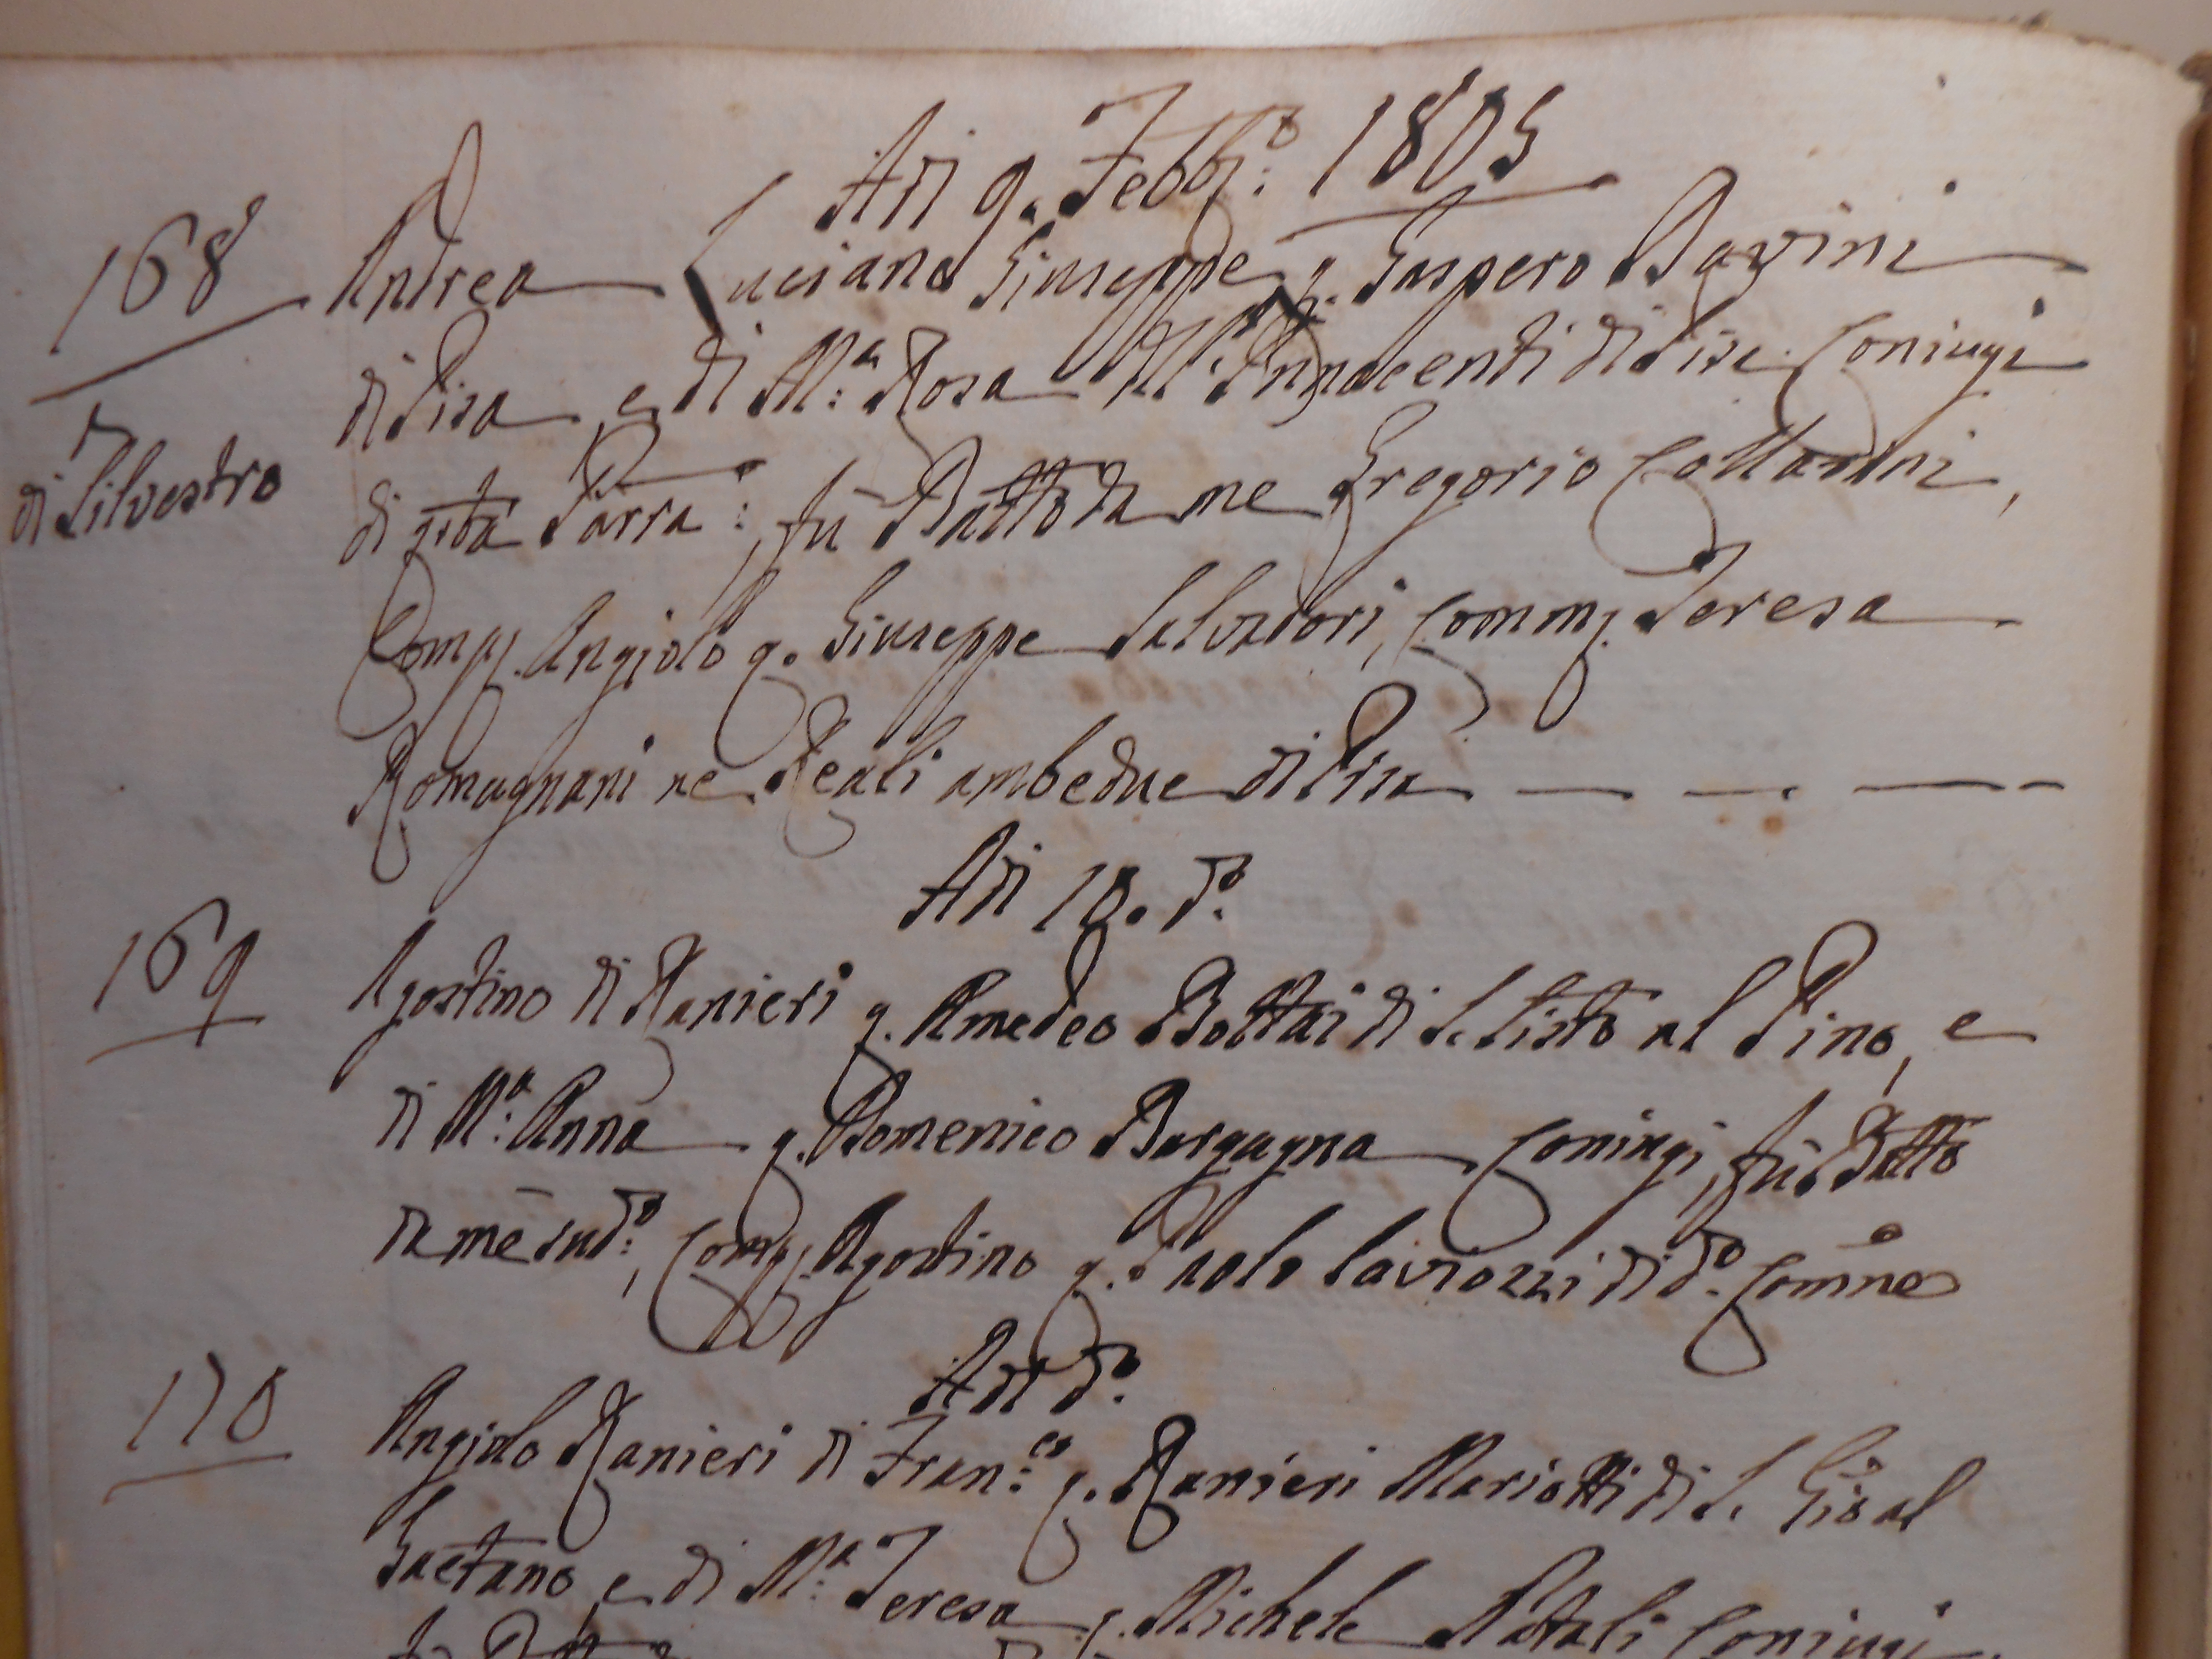 Adì 9. Febb:º 1805
168
Andrea Luciano Giuseppe q. Gaspero Bavini
di Pisa e di M:ª Rosa dell' Innocenti di Pisa Coniugi
di Silvestro
di qsta Parra:, fù Batto da me Gregorio Collardini,
Comp. Angiolo q. Giuseppe Salvadori, Comm. Teresa
Romagnani ne Reali ambedue di Pisa
Adì 10. dº.
169
Agostino di Ranieri q. Amedeo Bottai di S. Sisto al Pino, e
di M:ª Anna q. Domenico Bargagna Coniugi, fù Batto
da me sudº:, Comp. Agostino q. Paolo Caviozzi di dº. Comne
Adì dº.
170
Angiolo Ranieri di Fran:co q. Ranieri Mariotti di S. Gio al
Gaetano, e di M:ª Teresa q. Michele Natali Coniugi